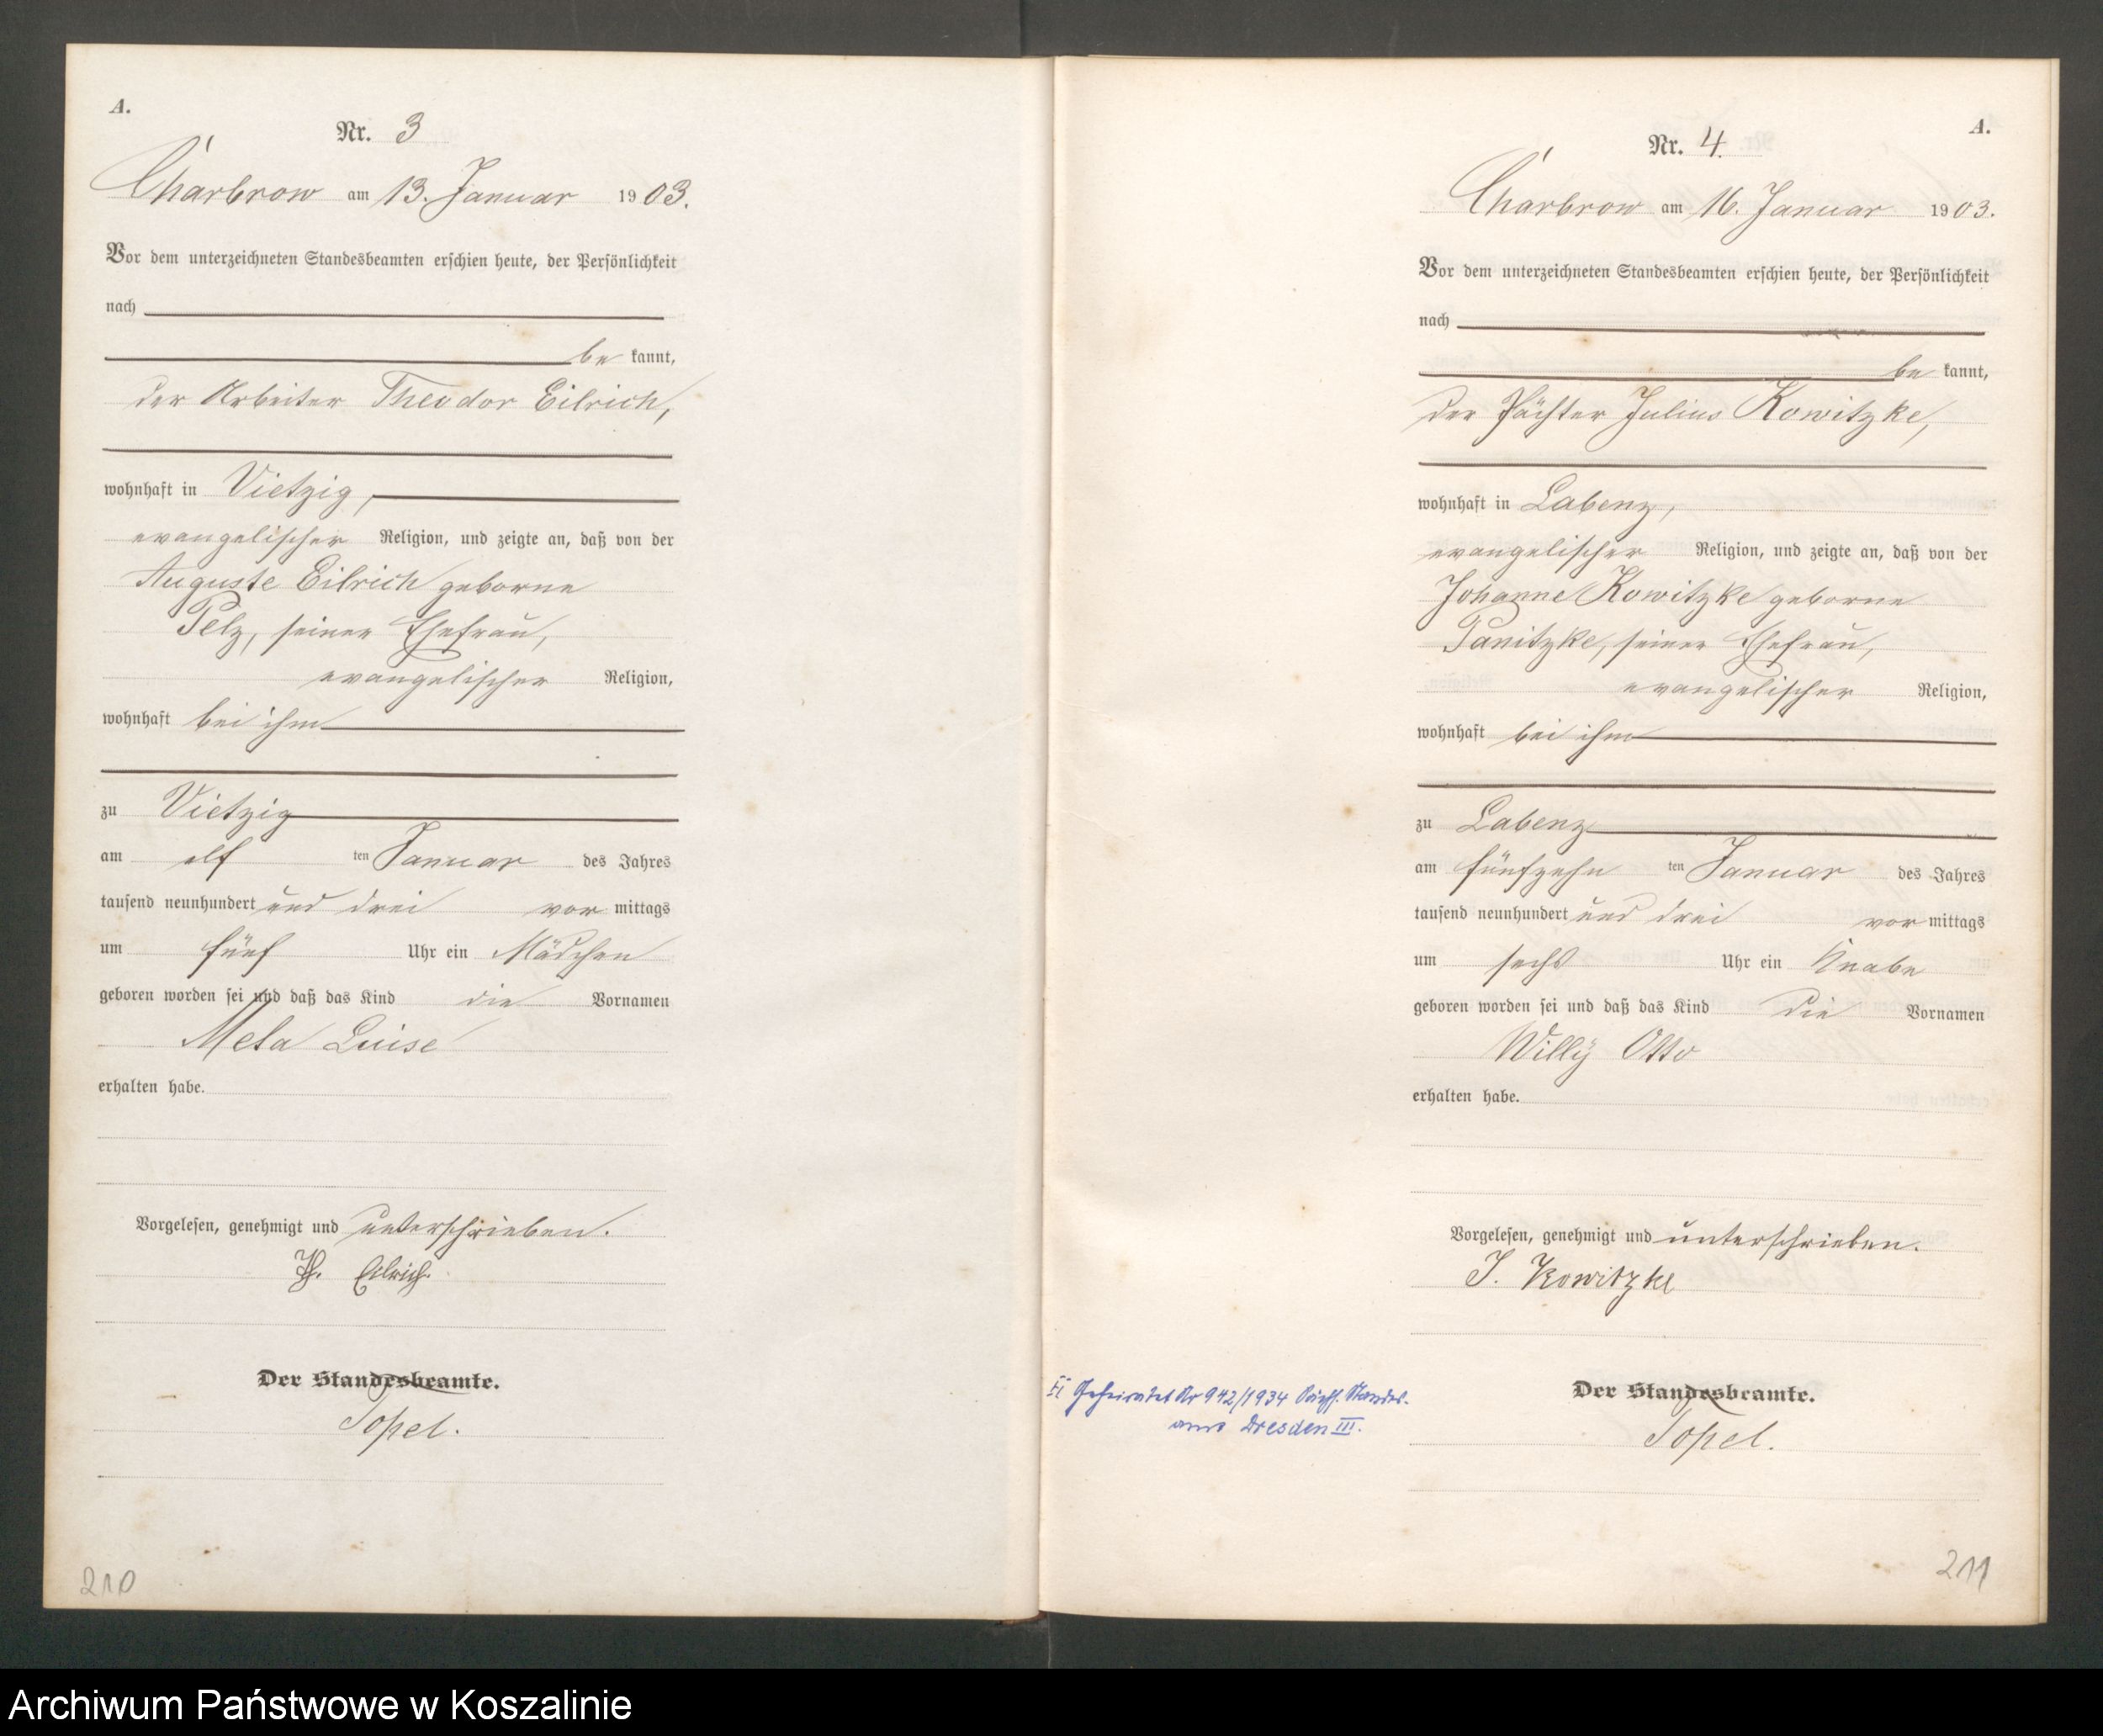 A.
Nr. 3
Charbrow am 13. Januar 1903.
Vor dem unterzeichneten Standesbeamten erschien heute, der Persönlichkeit
nach
be kannt,
der Arbeiter Theodor Eilrich,
wohnhaft in Vietzig,
evangelischer Religion, und zeigte an, daß von der
Auguste Eilrich geborne
Pelz, seiner Ehefrau,
evangelischer Religion,
wohnhaft bei ihm
zu Vietzig
am elf ten Januar des Jahres
tausend neunhundert und drei vor mittags
um fünf Uhr ein Mädchen
geboren worden sei und daß das Kind die Vornamen
Meta Luise
erhalten habe.
Vorgelesen, genehmigt und unterschrieben.
Th. Eilrich.
Der Standesbeamte.
Topel.
210
A.
Nr. 4.
Charbrow am 16. Januar 1903.
Vor dem unterzeichneten Standesbeamten erschien heute, der Persönlichkeit
nach
be kannt,
der Pächter Julius Kowitzke,
wohnhaft in Labenz,
evangelischer Religion, und zeigte an, daß von der
Johanne Kowitzke geborne
Panitzke, seiner Ehefrau,
evangelischer Religion,
wohnhaft bei ihm
zu Labenz
am fünfzehn ten Januar des Jahres
tausend neunhundert und drei vor mittags
um sechs Uhr ein Knabe
geboren worden sei und daß das Kind die Vornamen
Willy Otto
erhalten habe.
Vorgelesen, genehmigt und unterschrieben.
J. Kowitzke
Der Standesbeamte.
Topel.
Geheiratet Nr 942/1934 Sächs. Standes-
amt Dresden III.
211
Archiwum Państwowe w Koszalinie